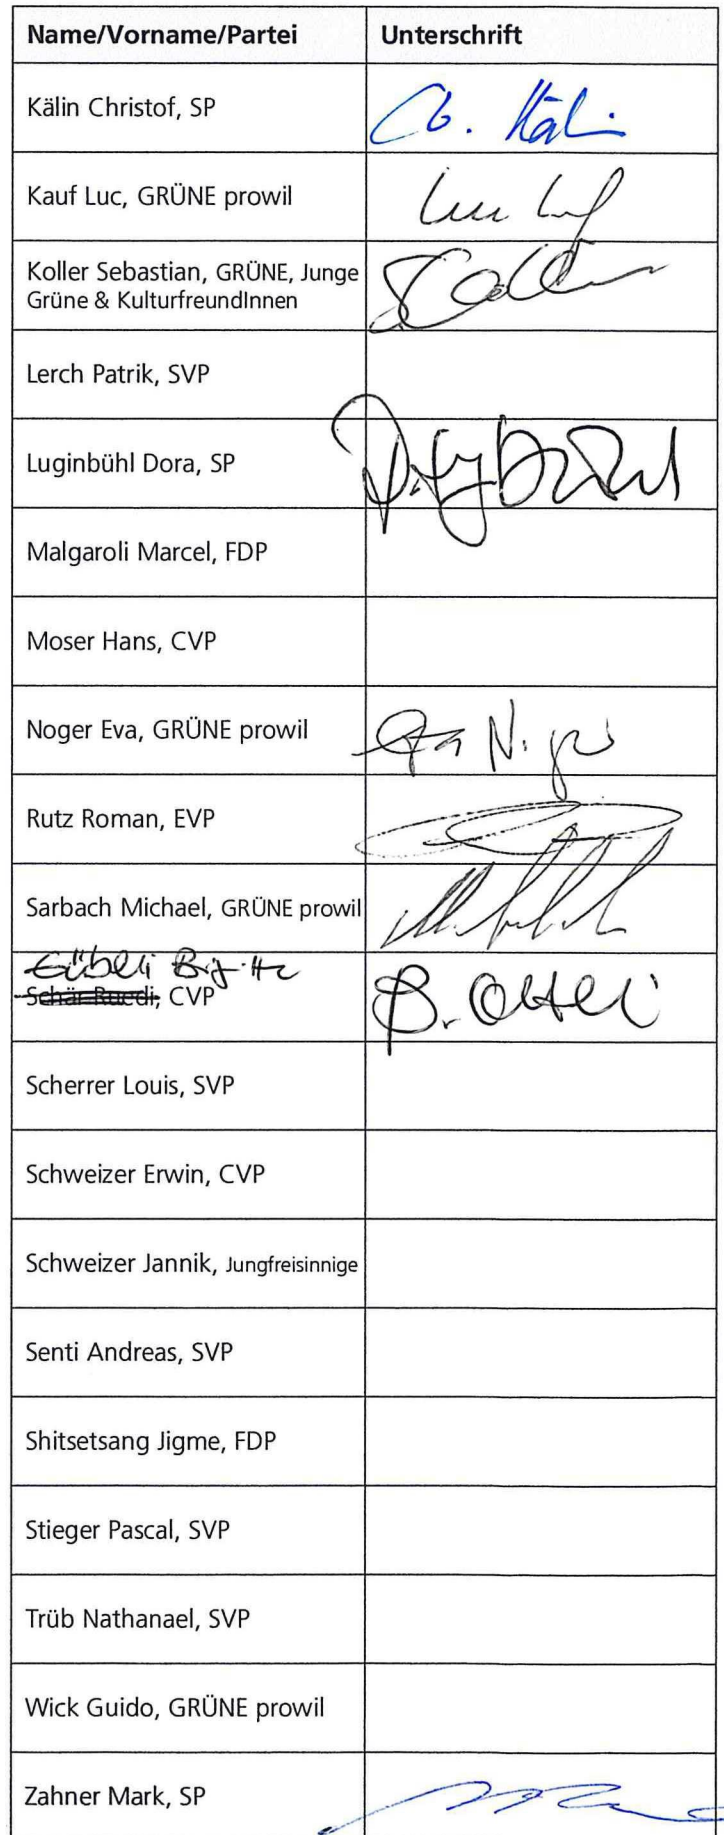 Name/Vorname/Partei Unterschrift
Kälin Christof, SP
Kauf Luc, GRÜNE prowil
Koller Sebastian, GRÜNE, Junge
Grüne & KulturfreundInnen
Lerch Patrik, SVP
Luginbühl Dora, SP
Malgaroli Marcel, FDP
Moser Hans, CVP
Noger Eva, GRÜNE prowil
Rutz Roman, EVP
Sarbach Michael, GRÜNE prowil
Schär Ruedi, CVP
Scherrer Louis, SVP
Schweizer Erwin, CVP
Schweizer Jannik, Jungfreisinnige
Senti Andreas, SVP
Shitsetsang Jigme, FDP
Stieger Pascal, SVP
Trüb Nathanael, SVP
Wick Guido, GRÜNE prowil
Zahner Mark, SP